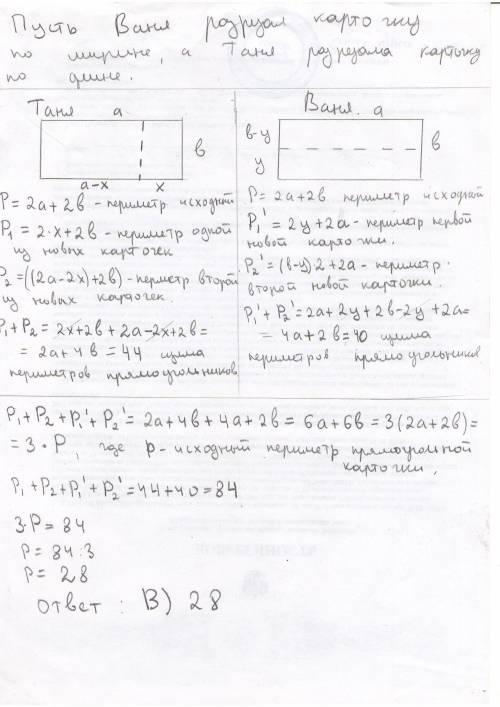 Пусть Ваня разрезал карточку
по ширине, а Таня разрезала карточку
по длине.
Таня a
в
a-x x
P = 2a+2в - периметр исходный
P₁ = 2·x+2в - периметр одной
из новых карточек
P₂ = ((2a-2x)+2в) - периметр второй
из новых карточек.
P₁+P₂ = 2x+2в+2a-2x+2в=
= 2a+4в=44 сумма
периметров прямоугольников
Ваня. a
в-y
y
в
P = 2a+2в периметр исходный
P₁' = 2y+2a - периметр первой
новой карточки.
P₂' = (в-y)·2+2a - периметр
второй новой карточки.
P₁'+P₂' = 2a+2y+2в-2y+2a=
= 4a+2в=40 сумма
периметров прямоугольников
P₁+P₂+P₁'+P₂' = 2a+4в+4a+2в = 6a+6в = 3(2a+2в)=
= 3·P, где p-исходный периметр прямоугольной
карточки.
P₁+P₂+P₁'+P₂' = 44+40=84
3·P = 84
P = 84:3
P = 28
ответ : В) 28